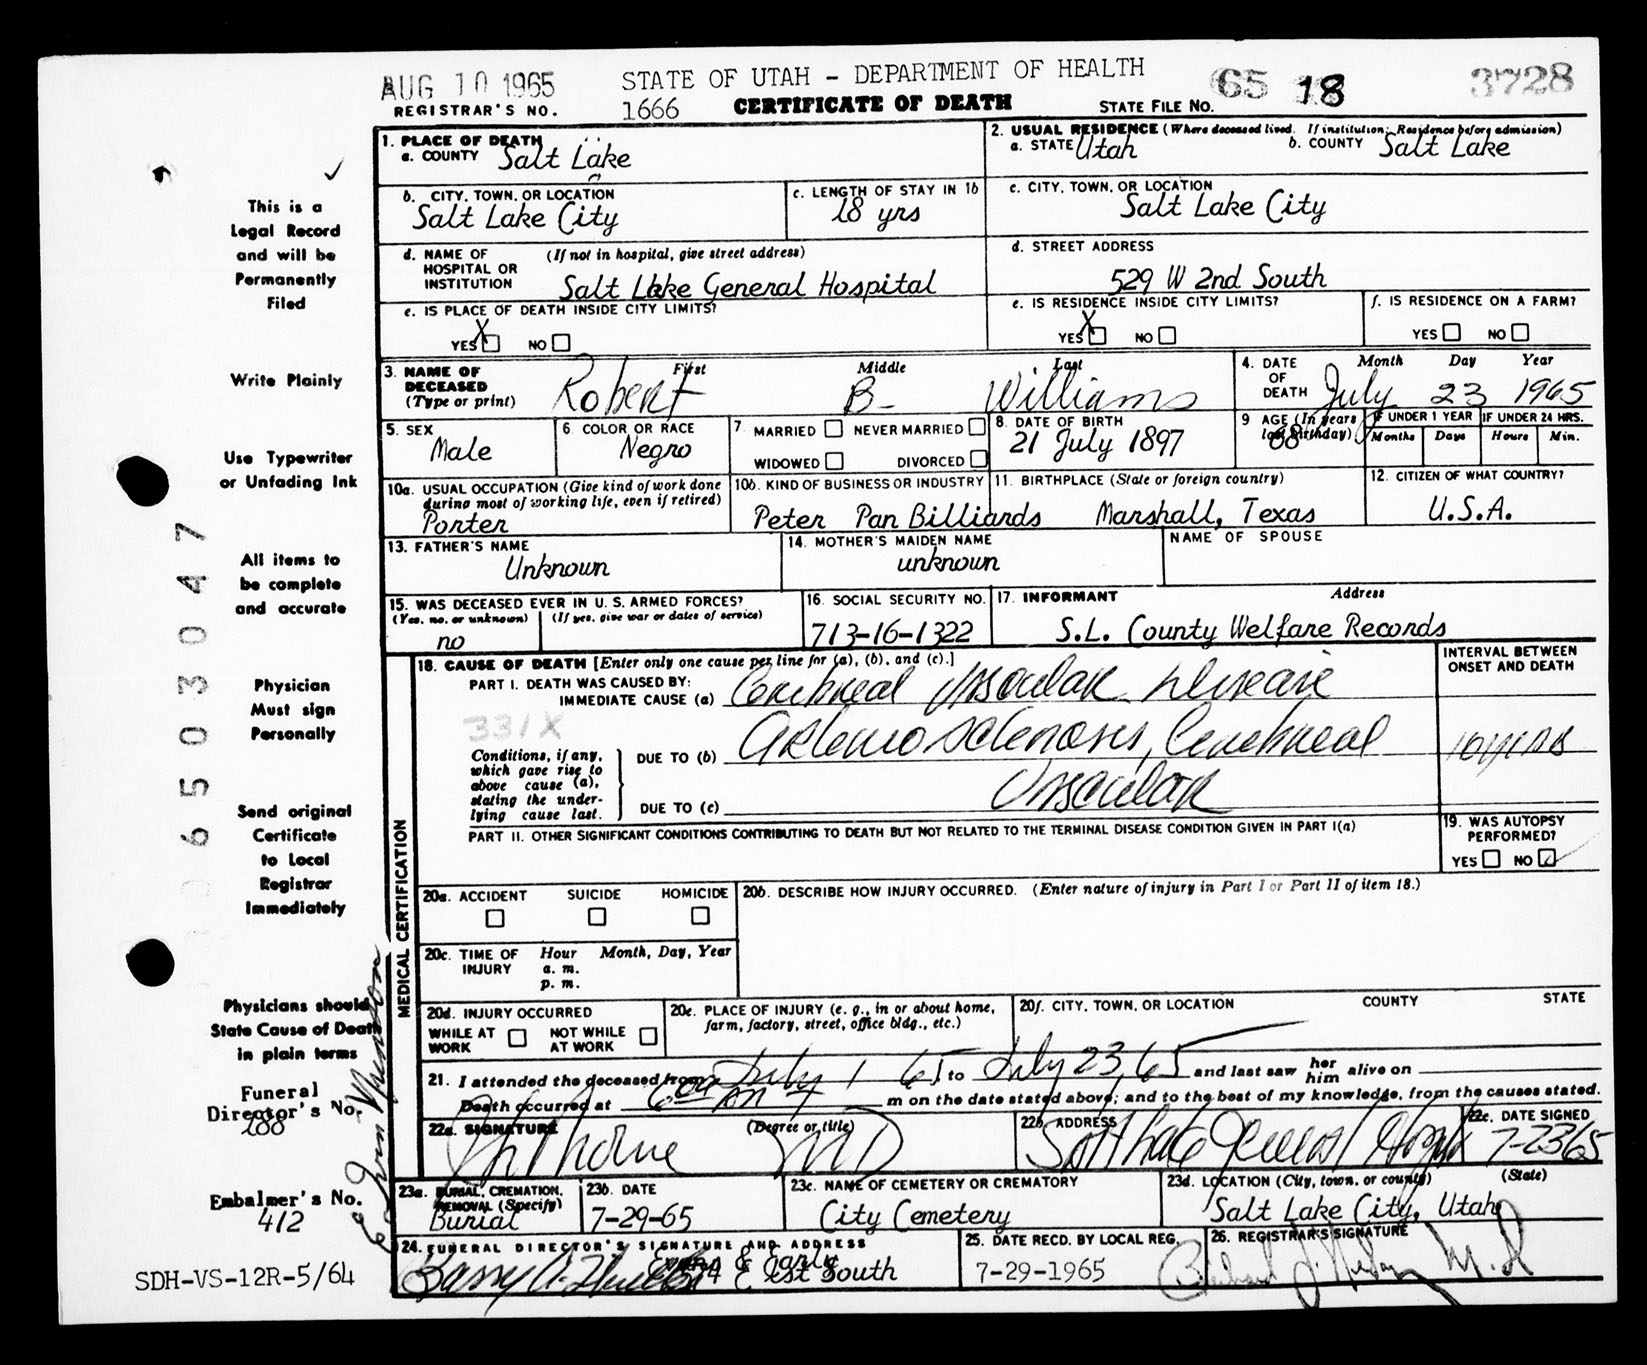 AUG 10 1965 STATE OF UTAH - DEPARTMENT OF HEALTH 65 18 3728
REGISTRAR'S NO. 1666 CERTIFICATE OF DEATH STATE FILE NO.
1. PLACE OF DEATH
a. COUNTY Salt Lake
2. USUAL RESIDENCE (Where deceased lived. If institution: Residence before admission)
a. STATE Utah b. COUNTY Salt Lake
b. CITY, TOWN, OR LOCATION
Salt Lake City
c. LENGTH OF STAY IN 1b
18 yrs
c. CITY, TOWN, OR LOCATION
Salt Lake City
d. NAME OF HOSPITAL OR INSTITUTION (If not in hospital, give street address)
Salt Lake General Hospital
d. STREET ADDRESS
529 W 2nd South
e. IS PLACE OF DEATH INSIDE CITY LIMITS?
YES X NO
e. IS RESIDENCE INSIDE CITY LIMITS?
YES X NO
f. IS RESIDENCE ON A FARM?
YES NO
3. NAME OF DECEASED (Type or print) First Middle Last
Robert B- Williams
4. DATE OF DEATH Month Day Year
July 23 1965
5. SEX
Male
6 COLOR OR RACE
Negro
7. MARRIED NEVER MARRIED
WIDOWED DIVORCED
8. DATE OF BIRTH
21 July 1897
9 AGE (In years last birthday)
68
IF UNDER 1 YEAR IF UNDER 24 HRS.
Months Days Hours Min.
10a. USUAL OCCUPATION (Give kind of work done during most of working life, even if retired)
Porter
10b. KIND OF BUSINESS OR INDUSTRY
Peter Pan Billiards
11. BIRTHPLACE (State or foreign country)
Marshall, Texas
12. CITIZEN OF WHAT COUNTRY?
U.S.A.
13. FATHER'S NAME
Unknown
14. MOTHER'S MAIDEN NAME
unknown
NAME OF SPOUSE
15. WAS DECEASED EVER IN U. S. ARMED FORCES?
(Yes, no, or unknown) (If yes, give war or dates of service)
no
16. SOCIAL SECURITY NO.
713-16-1322
17. INFORMANT Address
S.L. County Welfare Records
MEDICAL CERTIFICATION
18. CAUSE OF DEATH [Enter only one cause per line for (a), (b), and (c).]
INTERVAL BETWEEN ONSET AND DEATH
PART I. DEATH WAS CAUSED BY:
IMMEDIATE CAUSE (a) Cerebreal Vascular Disease
331X
Conditions, if any, which gave rise to above cause (a), stating the underlying cause last.
DUE TO (b) Arterio sclerosis, Cerebreal
Vascular
10 yrs
DUE TO (c)
PART II. OTHER SIGNIFICANT CONDITIONS CONTRIBUTING TO DEATH BUT NOT RELATED TO THE TERMINAL DISEASE CONDITION GIVEN IN PART I(a)
19. WAS AUTOPSY PERFORMED?
YES NO
20a. ACCIDENT SUICIDE HOMICIDE
20b. DESCRIBE HOW INJURY OCCURRED. (Enter nature of injury in Part I or Part II of item 18.)
20c. TIME OF INJURY Hour Month, Day, Year
a. m.
p. m.
20d. INJURY OCCURRED
WHILE AT WORK NOT WHILE AT WORK
20e. PLACE OF INJURY (e. g., in or about home, farm, factory, street, office bldg., etc.)
20f. CITY, TOWN, OR LOCATION COUNTY STATE
21. I attended the deceased from July 1 65 to July 23, 65 and last saw her him alive on
Death occurred at 6 00 AM m on the date stated above; and to the best of my knowledge, from the causes stated.
22a. SIGNATURE (Degree or title)
MD
22b. ADDRESS
Salt Lake General Hospital
22c. DATE SIGNED
7-23-65
23a. BURIAL, CREMATION, REMOVAL (Specify)
Burial
23b. DATE
7-29-65
23c. NAME OF CEMETERY OR CREMATORY
City Cemetery
23d. LOCATION (City, town, or county) (State)
Salt Lake City, Utah
24. FUNERAL DIRECTOR'S SIGNATURE AND ADDRESS
Evans & Early
E 1st South
25. DATE RECD. BY LOCAL REG.
7-29-1965
26. REGISTRAR'S SIGNATURE
M.D
This is a
Legal Record
and will be
Permanently
Filed
Write Plainly
Use Typewriter
or Unfading Ink
All items to
be complete
and accurate
Physician
Must sign
Personally
Send original
Certificate
to Local
Registrar
Immediately
Physicians should
State Cause of Death
in plain terms
Funeral
Director's No.
288
Embalmer's No.
412
SDH-VS-12R-5/64
6503047